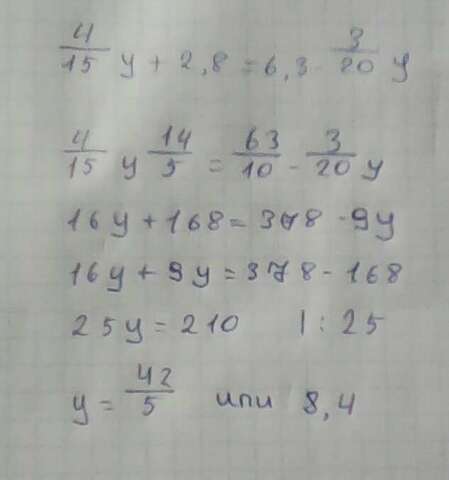 4/15 y + 2,8 = 6,3 - 3/20 y
4/15 y 14/5 = 63/10 - 3/20 y
16y + 168 = 378 - 9y
16y + 9y = 378 - 168
25y = 210 |: 25
y = 42/5 или 8,4